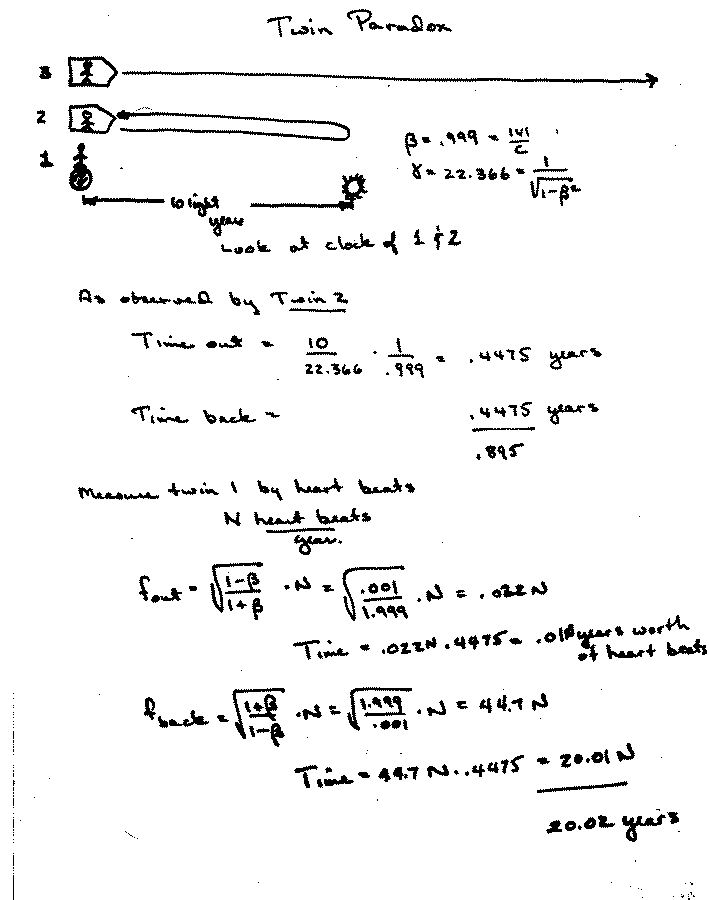 Twin Paradox
3
2
1
β = .999 = |v|/c
γ = 22.366 = 1/√(1-β²)
10 light years
Look at clock of 1 & 2
As observed by Twin 2
Time out = 10/22.366 · 1/.999 = .4475 years
Time back = .4475 years
.895
Measure twin 1 by heart beats
N heart beats
year.
f out = √((1-β)/(1+β)) · N = √(.001/1.999) · N = .022N
Time = .022N · .4475 = years worth
of heart beats
f back = √((1+β)/(1-β)) · N = √(1.999/.001) · N = 44.7 N
Time = 44.7 N · .4475 = 20.01 N
20.02 years